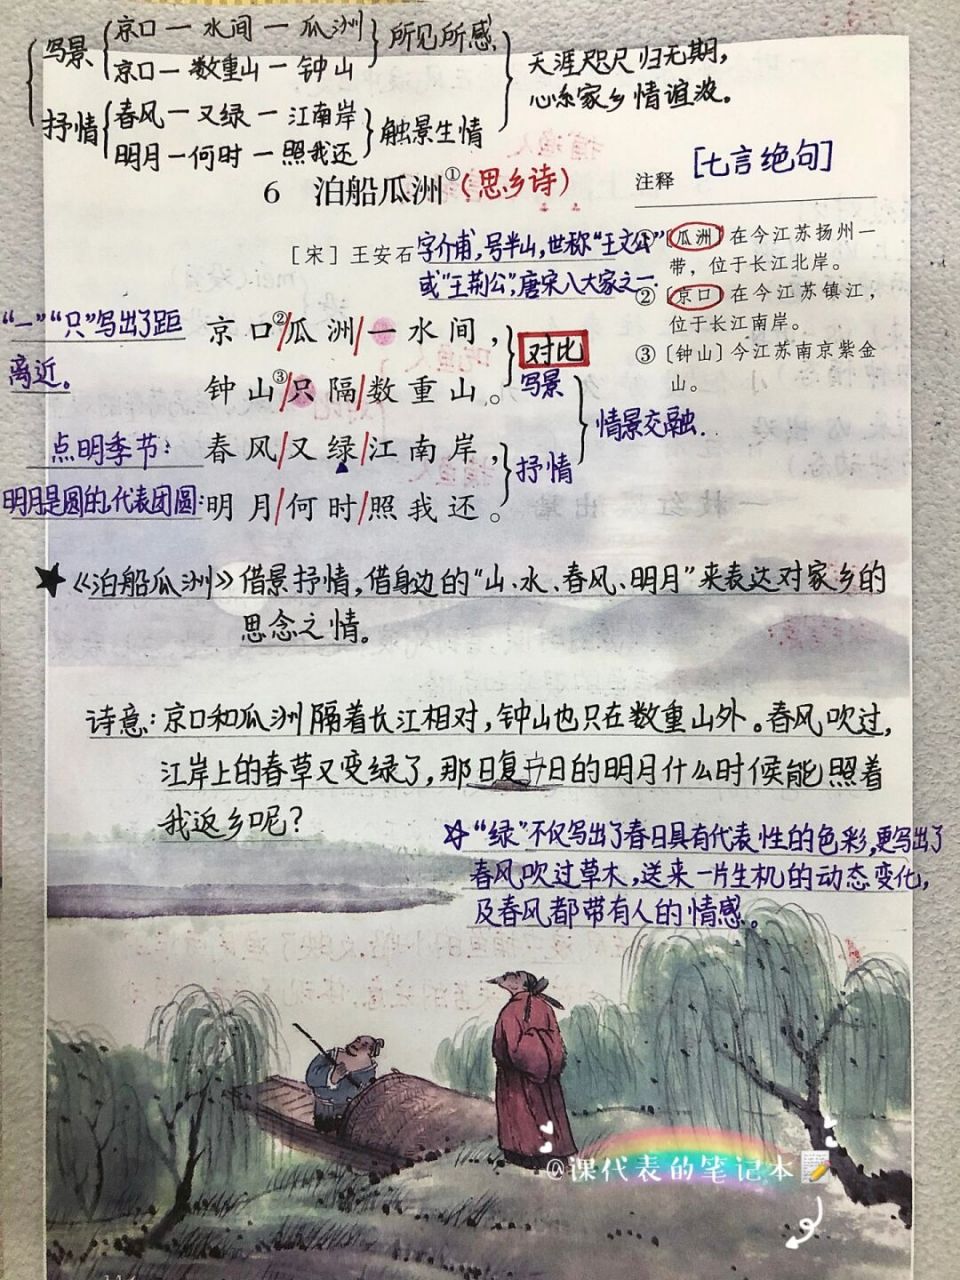 写景
京口一水间一瓜洲
京口一数重山一钟山
所见所感
抒情
春风一又绿一江南岸
明月一何时一照我还
触景生情
天涯咫尺归无期，
心系家乡情谊浓。
6 泊船瓜洲①（思乡诗）
注释 [七言绝句]
［宋］王安石 字介甫，号半山，世称“王文公”
或“王荆公”，唐宋八大家之一
①〔瓜洲〕在今江苏扬州一
带，位于长江北岸。
②〔京口〕在今江苏镇江，
位于长江南岸。
③〔钟山〕今江苏南京紫金
山。
“一”“只”写出了距
离近。
京口②/瓜洲/一水间，
钟山③/只隔/数重山。
对比
写景
点明季节：
春风/又绿/江南岸，
明月是圆的，代表团圆：
明月/何时/照我还。
抒情
情景交融.
★《泊船瓜洲》借景抒情，借身边的“山、水、春风、明月”来表达对家乡的
思念之情。
诗意：京口和瓜洲隔着长江相对，钟山也只在数重山外。春风吹过，
江岸上的春草又变绿了，那日复一日的明月什么时候能照着
我返乡呢？
☆“绿”不仅写出了春日具有代表性的色彩，更写出了
春风吹过草木，送来一片生机的动态变化，
及春风都带有人的情感。
@课代表的笔记本